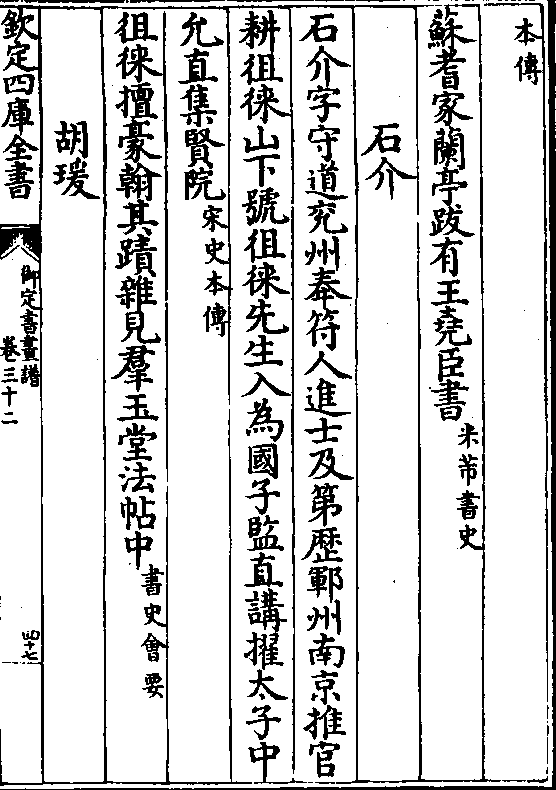 本傳
蘇耆家蘭亭跋有王堯臣書米芾書史
石介
石介字守道兖州奉符人進士及第歷鄆州南京推官
耕徂徠山下號徂徠先生入為國子監直講擢太子中
允直集賢院宋史本傳
徂徠擅豪翰其蹟雜見羣玉堂法帖中書史會要
胡瑗
欽定四庫全書
御定書畫譜
卷三十二
四十七